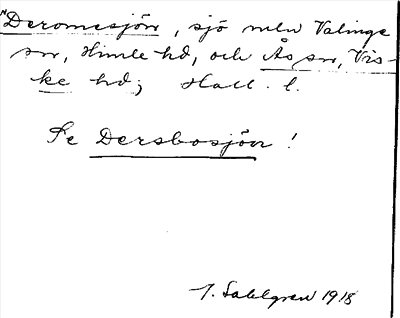 "Deromesjön, sjö mln Valinge
sn, Himle hd, och Ås sn, Vis-
ke hd; Hall. l.
Se Dersbosjön!
J. Sahlgren 1918